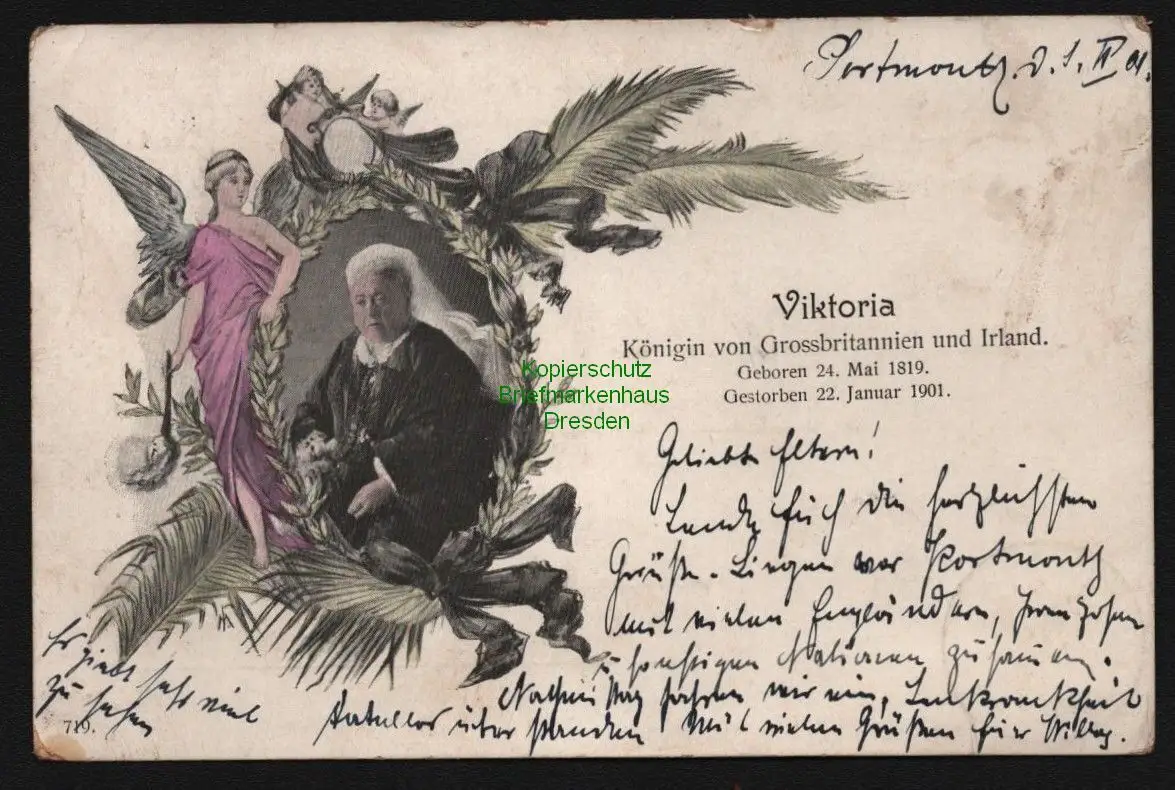 Portmouth. d. 1. II 01.
Viktoria
Königin von Grossbritannien und Irland.
Geboren 24. Mai 1819.
Gestorben 22. Januar 1901.
Kopierschutz
Briefmarkenhaus
Dresden
Geliebte Eltern!
Sende Euch die herzlichsten
Grüße. Liegen vor Portmouth
mit vielen Engländern, Franzosen
u sonstigen Nationen zusammen.
Nachmittag fahren wir ein, Seekrankheit
tadellos überstanden Mit vielen Grüßen Euer Willy.
Es giebt sehr viel
zu sehen
719.